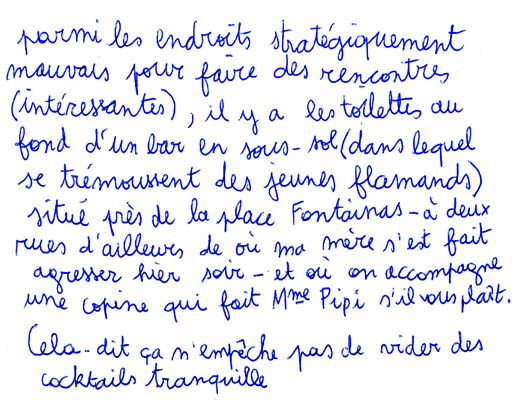 parmi les endroits stratégiquement
mauvais pour faire des rencontres
(intéressantes), il y a les toilettes au
fond d'un bar en sous-sol (dans lequel
se trémoussent des jeunes flamands)
situé près de la place Fontainas - à deux
rues d'ailleurs de où ma mère s'est fait
agresser hier soir - et où on accompagne
une copine qui fait Mme Pipi s'il vous plaît.
Cela-dit ça n'empêche pas de vider des
cocktails tranquille